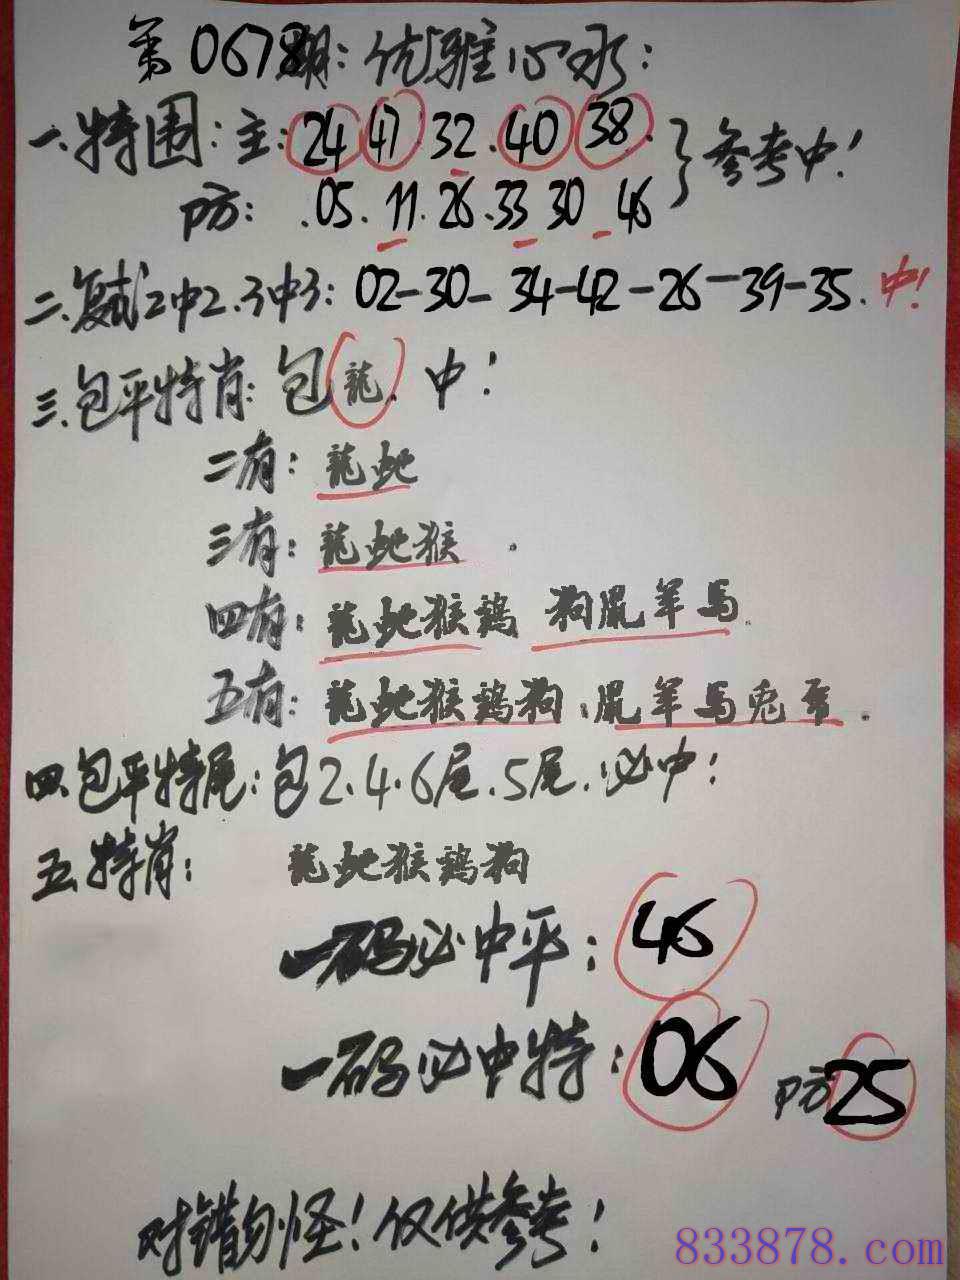 第0678期：优雅心水：
一.特围：主：24 47 32.40 38. 参考中！
防：.05.11.26.33 30 46
二.复式2中2.3中3：02-30-34-42-26-39-35.中！
三.包平特肖：包龍.中！
二有：龍蛇
三有：龍蛇猴.
四有：龍蛇猴鷄 狗鼠羊马.
五有：龍蛇猴鷄狗.鼠羊马兎.
四.包平特尾：包2.4.6尾.5尾.必中！
五.特肖：龍蛇猴鷄狗
一码必中平：46
一码必中特：06 防25
对错勿怪！仅供参考！
833878.com